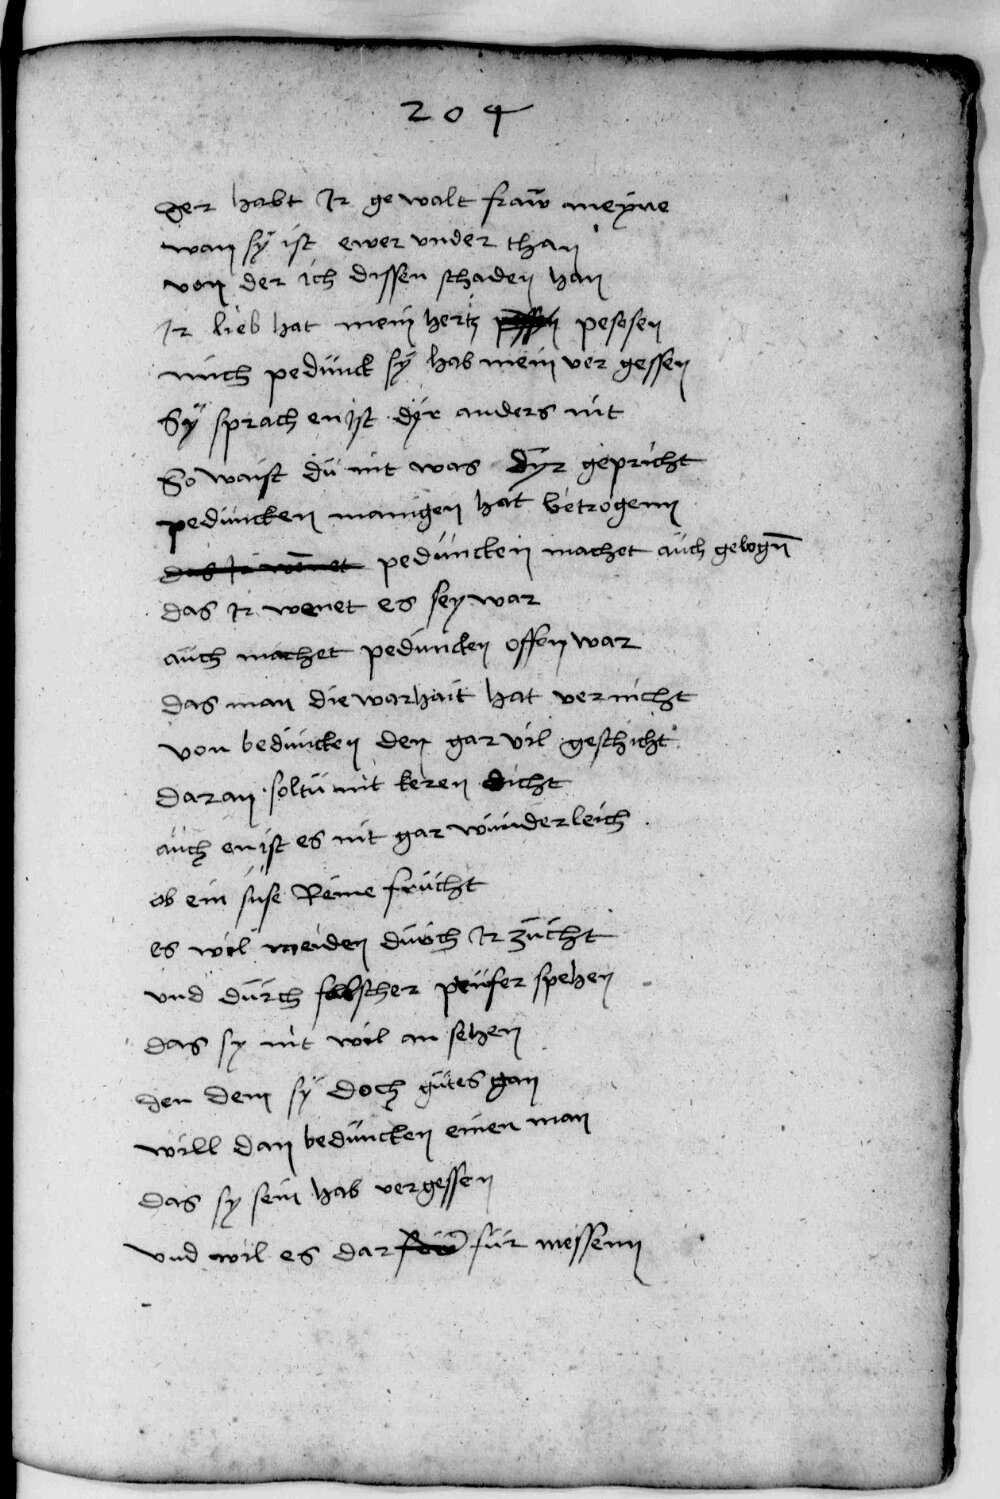 204
Der habt Ir gewalt fraw meyne
wan sÿ ist ewer vnder than
von der ich dissen schaden han
Ir lieb hat mein hertz pesesen
mich pedunck sÿ hab mein ver gessen
Sÿ sprach en ist dÿr anders nit
So waist dü nit was dÿr gepricht
pedüncken manigen hat betrogenn
das Ir wenet pedüncken machet aüch gelogn̄
das Ir wenet es sey war
aüch machet pedüncken offenwar
das man die warhait hat vernicht
von bedüncken den gar vil geschicht
daran soltü nit keren dicht
aüch en ist es nit gar wünderleich
ob ein süse Reine frücht
es wil meiden dürch Ir zücht
vnd dürch falscher prüfer spehen
das sy nit wil an sehen
den dem sÿ doch gütes gan
will dan bedüncken einen man
das sy sein hab vergessen
vnd wil es dar für messenn